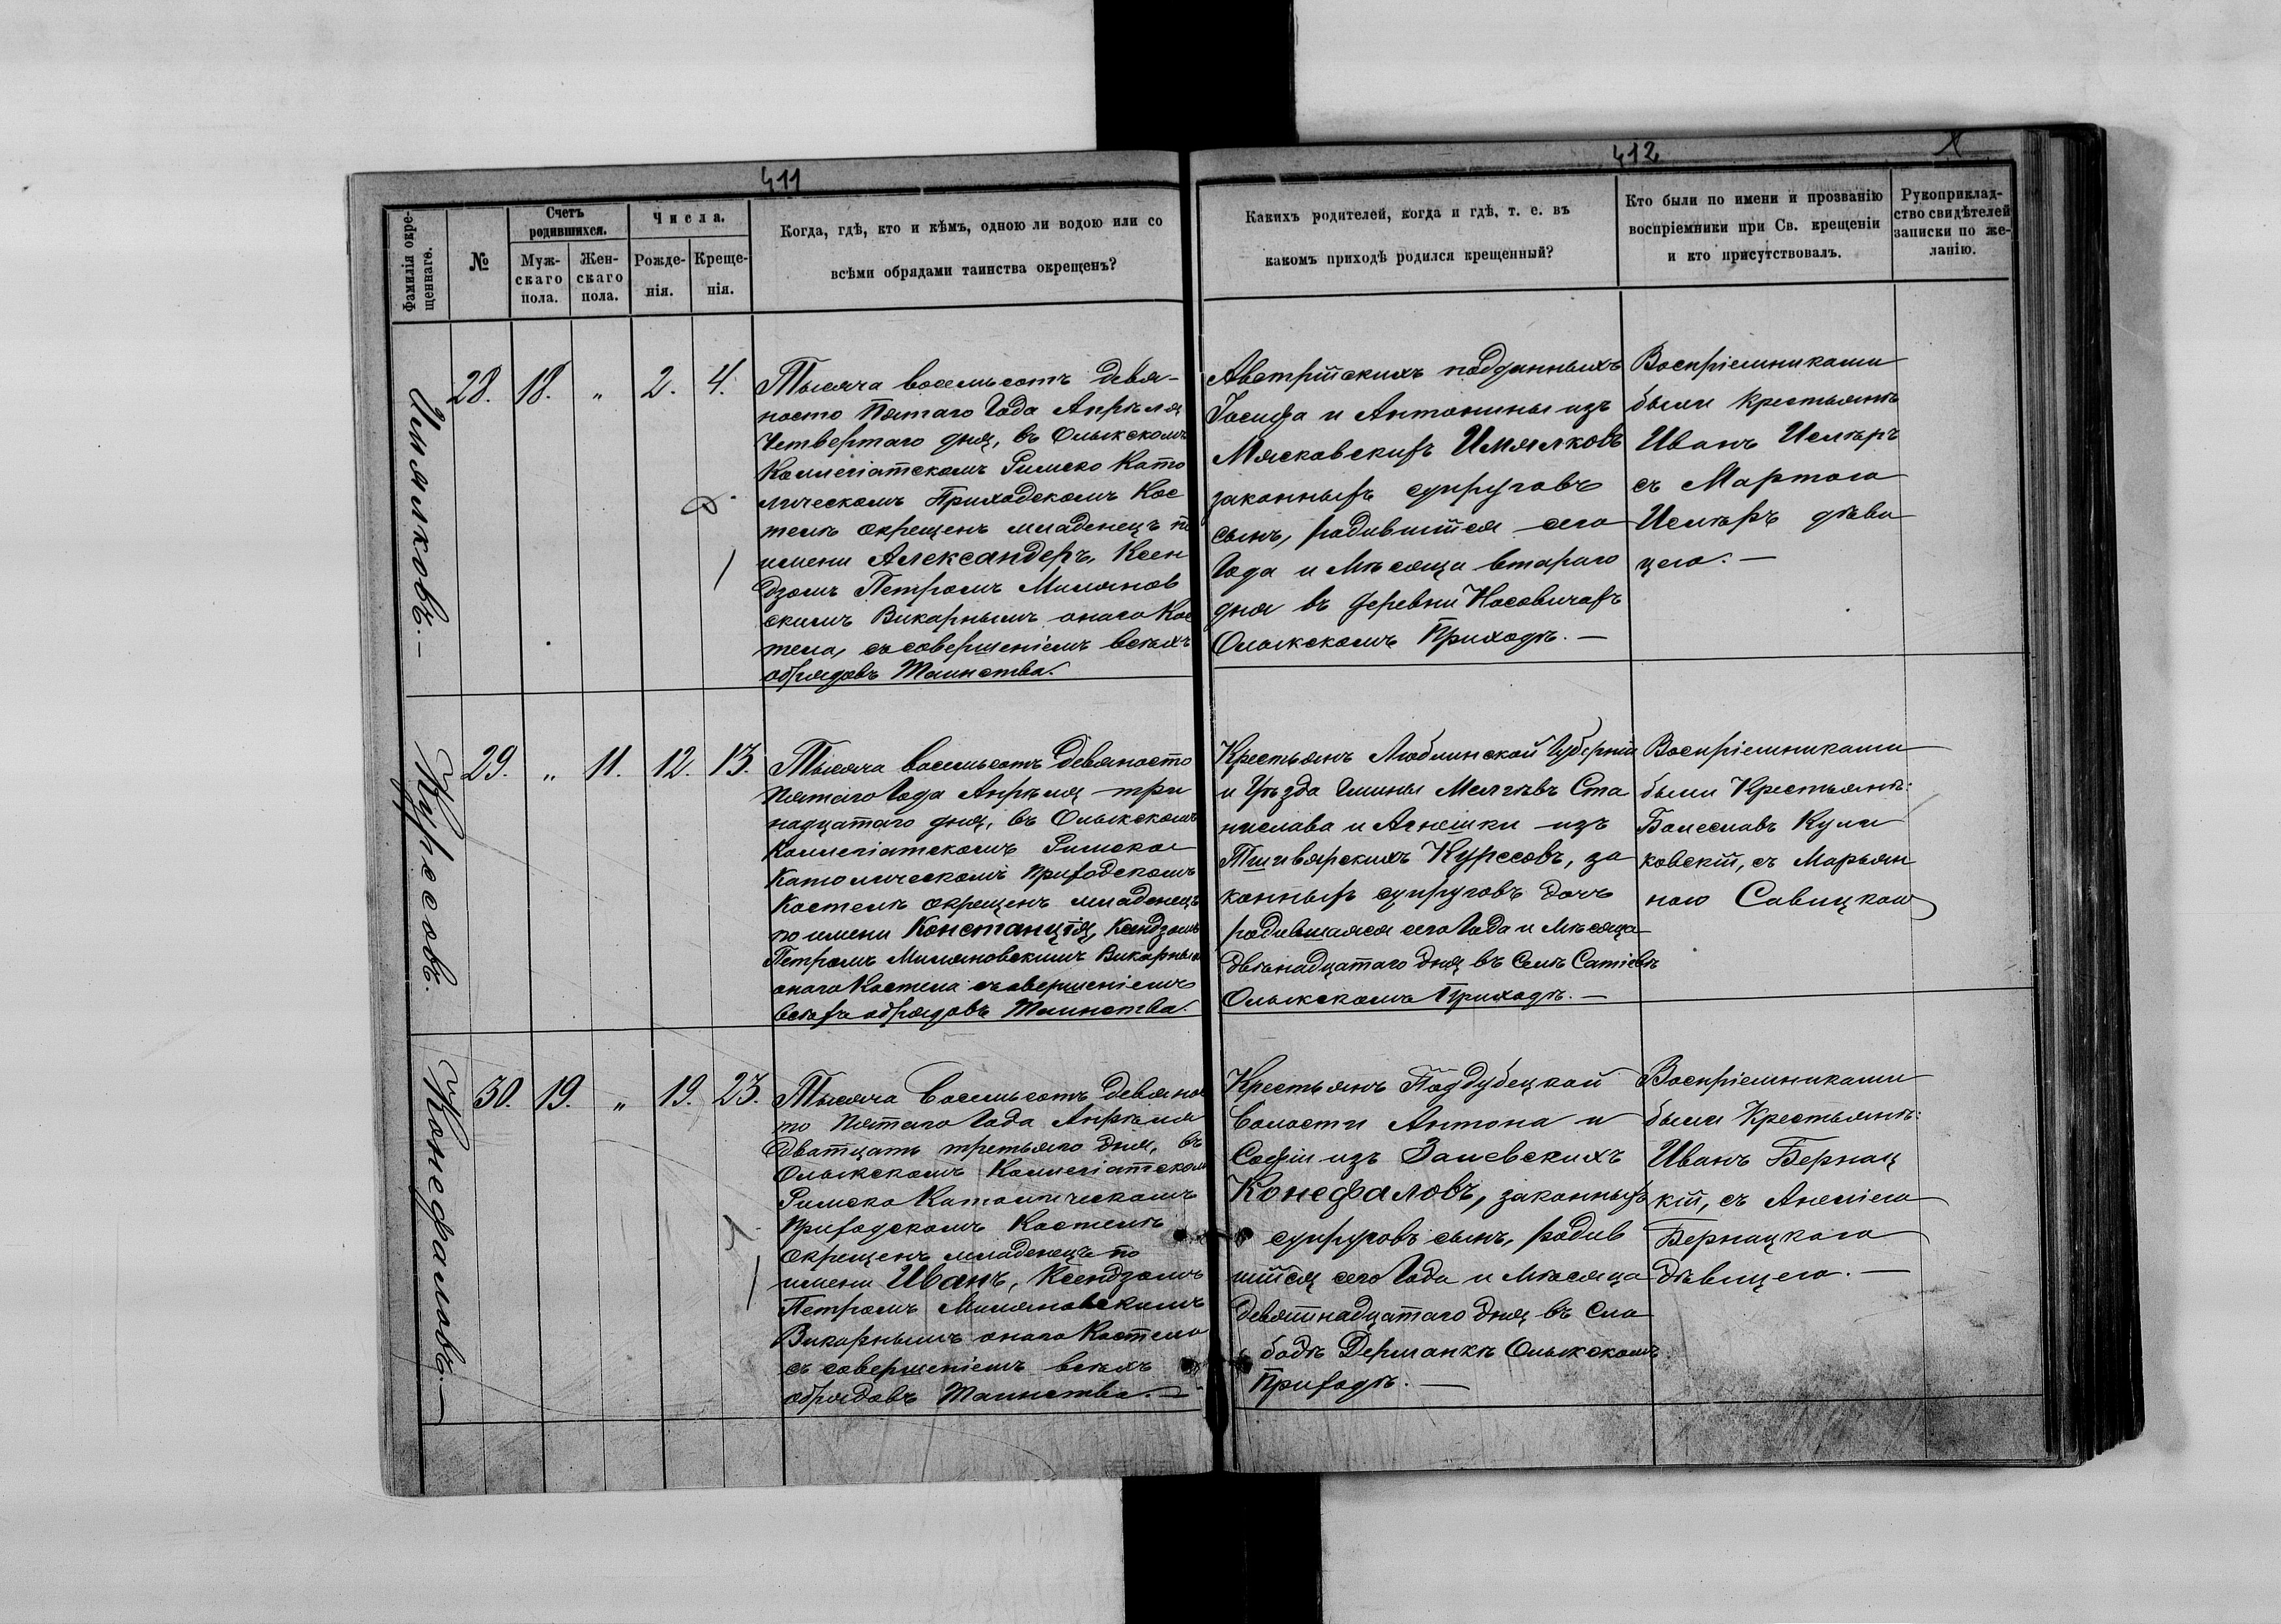 411
Фамилія окре-
щеннаго.
№
Счетъ
родившихся.
Муж-
скаго
пола.
Жен-
скаго
пола.
Числа.
Рожде-
нія.
Креще-
нія.
Когда, гдѣ, кто и кѣмъ, одною ли водою или со
всѣми обрядами таинства окрещенъ?
412
Какихъ родителей, когда и гдѣ, т. е. въ
какомъ приходѣ родился крещенный?
Кто были по имени и прозванію
воспріемники при Св. крещеніи
и кто присутствовалъ.
Рукоприклад-
ство свидѣтелей
записки по же-
ланію.
Имялковъ.—
28. 18. „ 2. 4.
Тысяча восемьсотъ девя-
носто Пятаго Года Апрѣля
Четвертаго дня, въ Олыкскомъ
Коллегіатскомъ Римско Като
лическомъ Приходскомъ Кос
телѣ окрещенъ младенецъ по
имени Александеръ, Ксен
дзомъ Петромъ Миляновскимъ
Викарнымъ онаго Кос
тела, съ совершеніемъ всѣхъ
обрядовъ Таинства.
Австрійскихъ подданныхъ
Іосифа и Антонины изъ
Мясковскихъ Имялковъ
законныхъ супруговъ
сынъ, родившійся сего
Года и Мѣсяца втораго
дня въ деревни Носовичахъ
Олыкскомъ Приходѣ.—
Воспріемниками
были крестьянѣ
Иванъ
съ Мартою
дѣви
цею.—
Курсовъ.
29. „ 11. 12. 13.
Тысяча восемьсотъ девяносто
Пятаго Года Апрѣля три
надцатаго дня, въ Олыкскомъ
Коллегіатскомъ Римско
Католическомъ Приходскомъ
Костелѣ окрещенъ младенецъ
по имени Констанція, Ксендзомъ
Петромъ Миляновскимъ Викарным
онаго Костела съ совершеніемъ
всѣхъ обрядовъ Таинства.
Крестьянъ Люблинской Губерніи
и Уѣзда Гмины Мелгѣвъ Ста
нислава и Агнешки изъ
Пшивярскихъ Курсовъ, за
конныхъ супруговъ дочь
родившаяся сего Года и Мѣсяца
двѣнадцатаго дня въ Селѣ Сатіевѣ
Олыкскомъ Приходѣ.—
Воспріемниками
были Крестьянѣ:
Болеславъ Кули
ковскій, съ Марьян
ною Савицкою
Конефаловъ.—
30. 19. „ 19. 23.
Тысяча Восемьсотъ девянос
то Пятаго Года Апрѣля
Дватцать третьяго дня, въ
Олыкскомъ Коллегіатском
Римско Католическомъ
Приходскомъ Костелѣ
окрещенъ младенецъ по
имени Иванъ, Ксендзомъ
Петромъ Миляновскимъ
Викарнымъ онаго Костела
съ совершеніемъ всѣхъ
обрядовъ Таинства.—
Крестьянъ Поддубецкой
Волости Антона и
Софіи изъ Залевскихъ
Конефаловъ, законныхъ
супруговъ сынъ, родив
шійся сего Года и Мѣсяца
девятнадцатаго дня въ Сло
бодѣ Дерманкѣ Олыкскомъ
Приходѣ.—
Воспріемниками
были Крестьянѣ:
Иванъ Бернац
кій, съ Анеліею
Бернацкою
дѣвицею.—